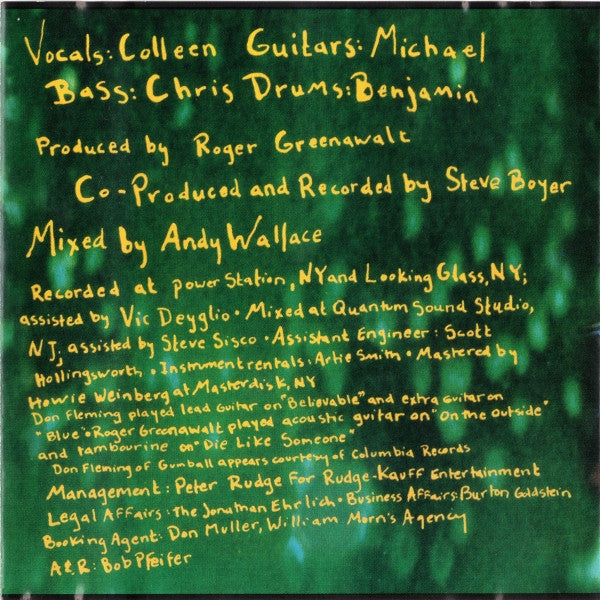 Vocals: Colleen Guitars: Michael
Bass: Chris Drums: Benjamin
Produced by Roger Greenawalt
Co-Produced and Recorded by Steve Boyer
Mixed by Andy Wallace
Recorded at Power Station, NY and Looking Glass, NY;
assisted by Vic Deyglio • Mixed at Quantum Sound Studio,
NJ, assisted by Steve Sisco • Assistant Engineer: Scott
Hollingsworth • Instrument rentals: Artie Smith • Mastered by
Howie Weinberg at Masterdisk, NY
Don Fleming played lead guitar on "Believable" and extra guitar on
"Blue" • Roger Greenawalt played acoustic guitar on "On the outside"
and tambourine on "Die Like Someone"
Don Fleming of Gumball appears courtesy of Columbia Records
Management: Peter Rudge for Rudge-Kauff Entertainment
Legal Affairs: The Jonathan Ehrlich • Business Affairs: Burton Goldstein
Booking Agent: Don Muller, William Morris Agency
A&R: Bob Pfeifer